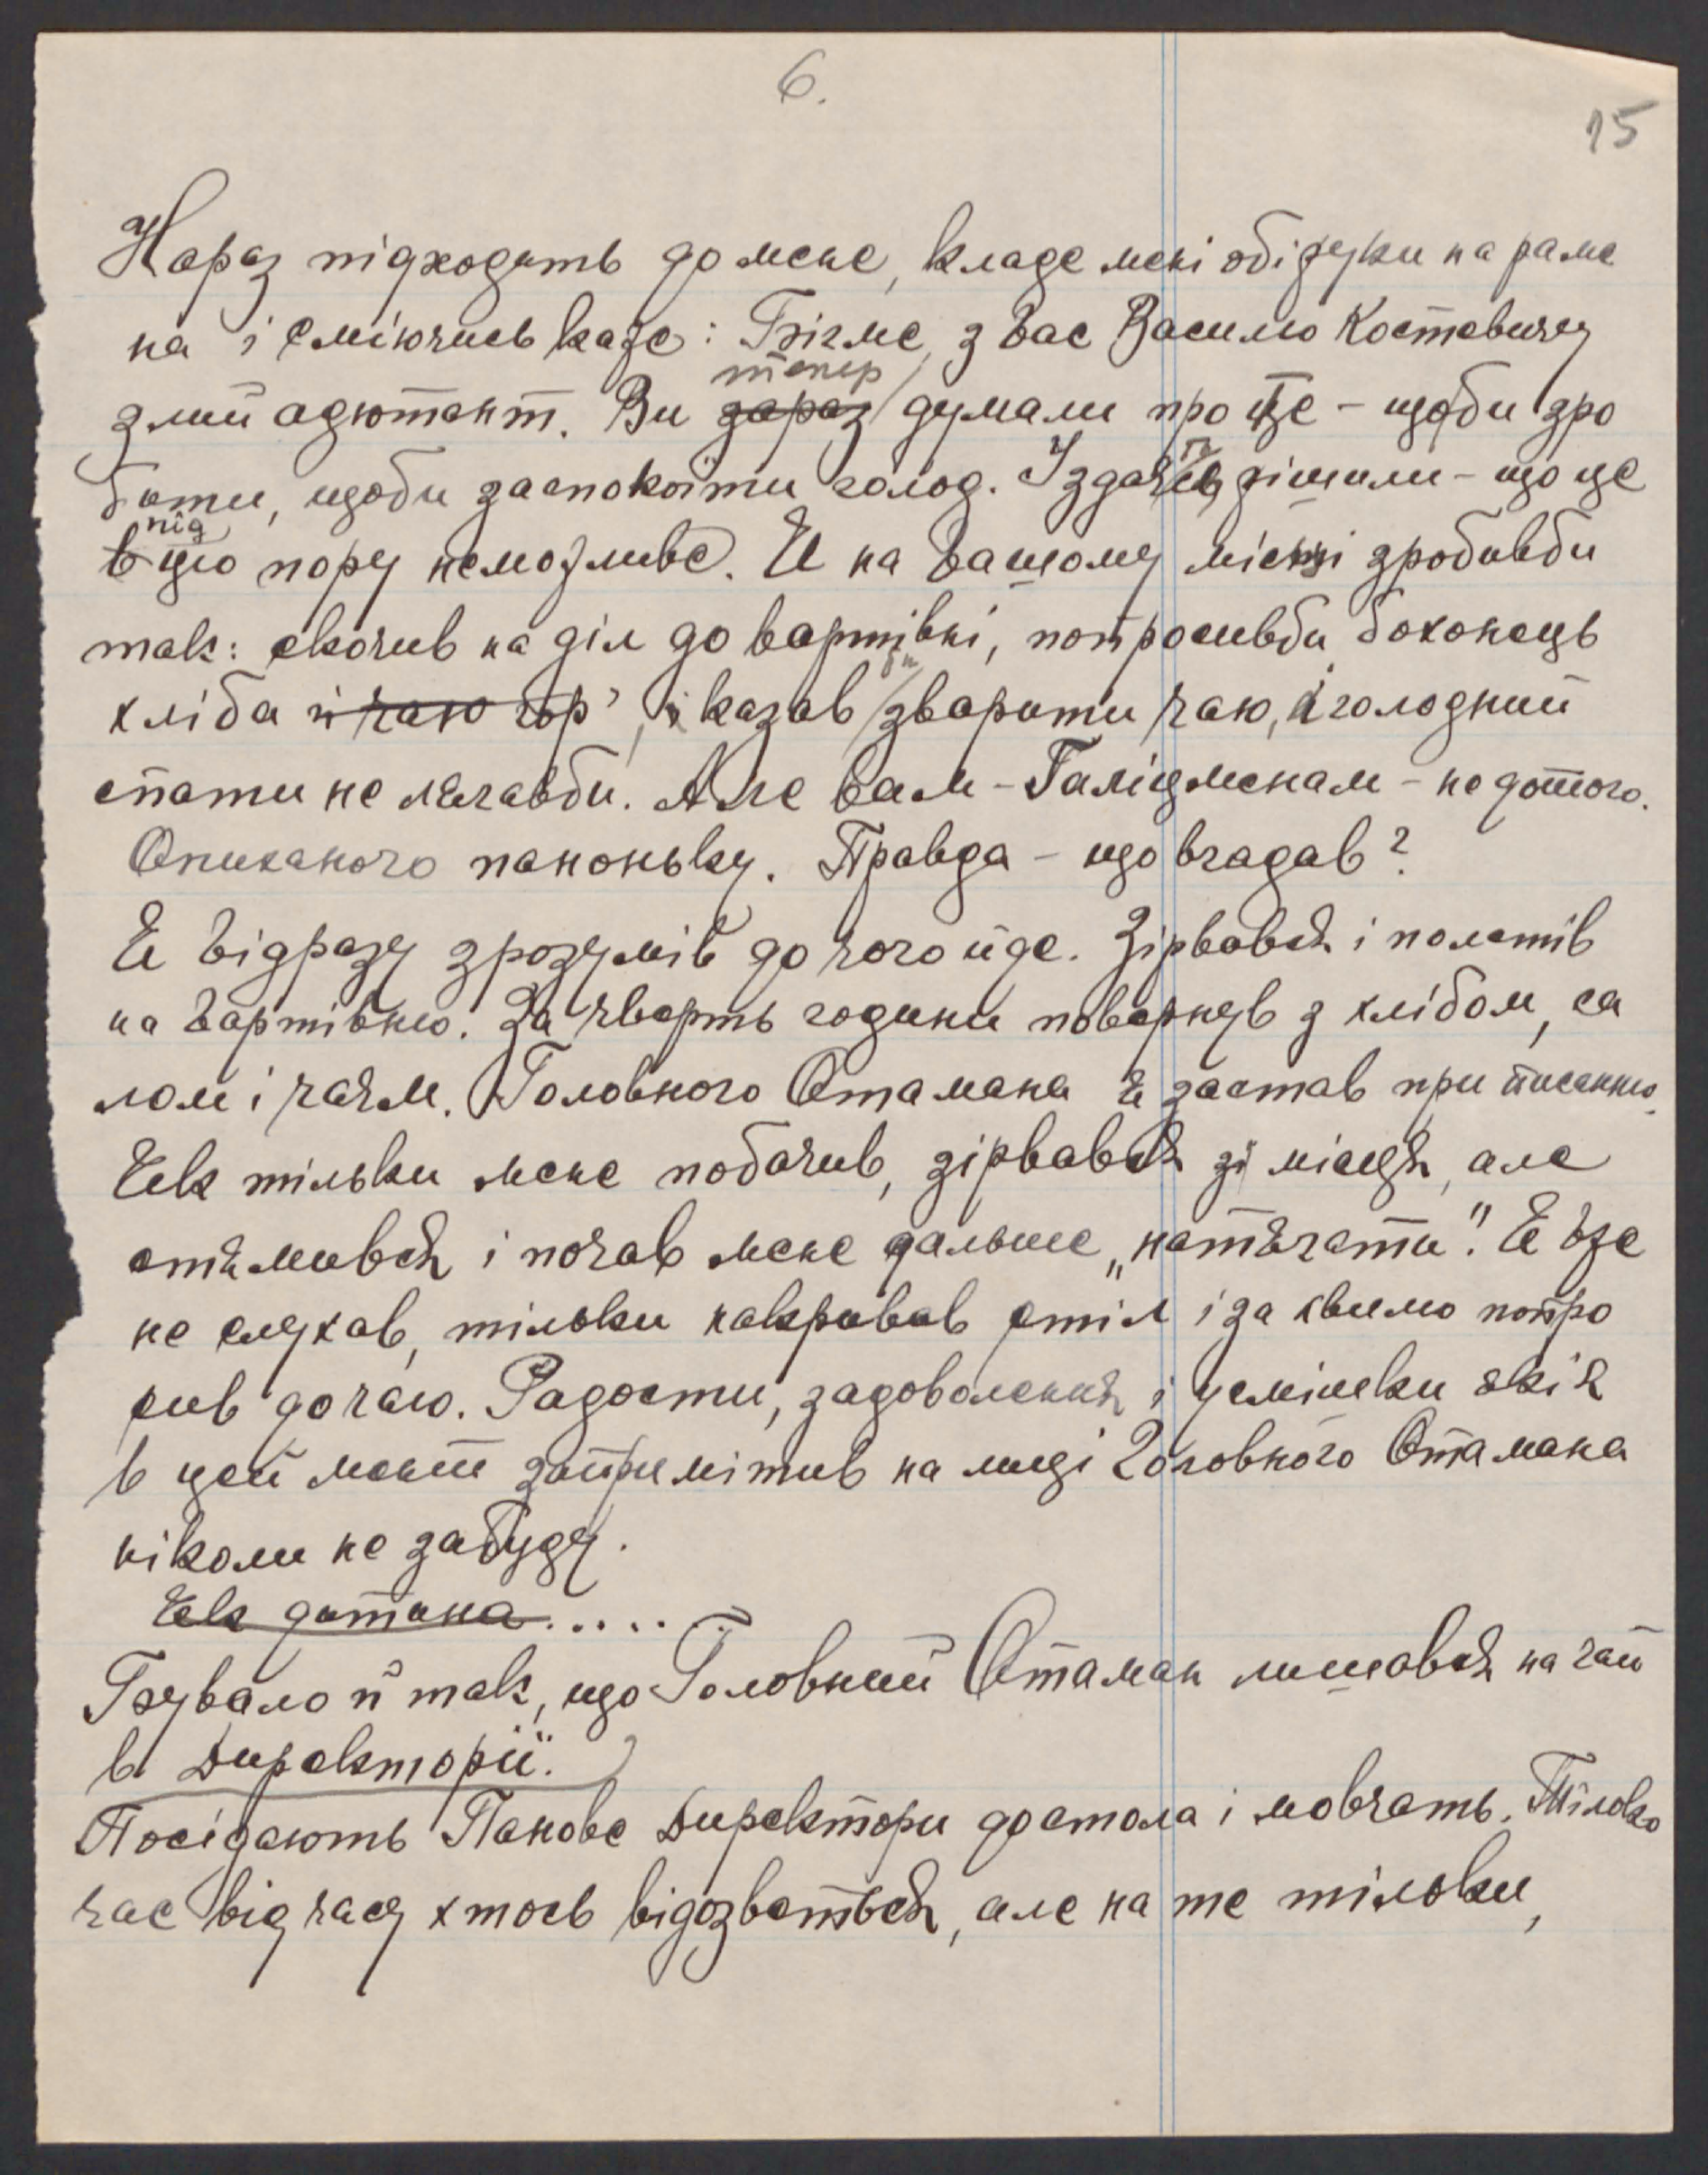 6.
15
Нараз підходить до мене, кладе мені обі руки на раме
на і сміючись каже: Нігме, з Вас Василю Костевичу
злий адютант. Ви зараз тепер думали про це – щоби зро
бити, щоби заспокоїти голод. І здаєтся рішили – що це
в під цю пору неможливе. Я на Вашому місці зробивби
так: скочив на діл до вартівні, попросивби боханець
хліба і чаю гор, і казав би зварити чаю, і голодний
спати не лягавби. Але вам – Галіцменам – не дотого.
Опиханого паноньку. Правда – що вгадав?
Я відразу зрозумів до чого йде. Зірвався і полетів
на вартівню. За чверть години повернув з хлібом, са
лом і чаєм. Головного Отамана я застав при писанню.
Як тільки мене побачив, зірвався зі місця, але
стямився і почав мене дальше „натягати". Я вже
не слухав, тільки накривав стіл і за хвилю попро
сив до чаю. Радости, задоволення і усмішки які я
в цей мент запримітив на лиці Головного Отамана
ніколи не забуду.
Як дитина.....
Бувало й так, що Головний Отаман лишався на чай
в Директорії.
Посідають Панове Директори до стола і мовчать. Тілько
час від часу хтось відозветься, але на те тільки,